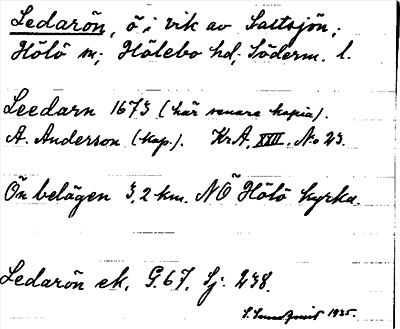 Ledarön, ö i vik av Saltsjön,
Hölö sn; Hölebo hd, Söderm. l.
Leedarn 1673 (här senare kopia).
A. Anderson (kop.). Kr.A. XXII. No 23.
Ön belägen 3,2 km. NÖ Hölö kyrka.
Ledarön ek. G.67. Sj. 238.
1935.